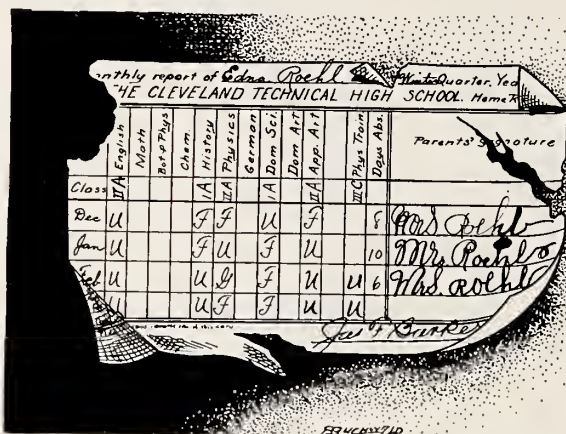 onthly report of Edna Roehl Winter Quarter, Yea
THE CLEVELAND TECHNICAL HIGH SCHOOL. Home R
English Math Bot & Phys Chem. History Physics German Dom Sci. Dom Art App. Art Phys Train. Days Abs. Parents' Signature
Class IIA IA IIA IA IIA IIIC
Dec U F F U F 8 Mrs Roehl
Jan U F U F U 10 Mrs. Roehl
Feb U U G F U U 6 Mrs. Roehl
U U F F U U
Jas F Barker